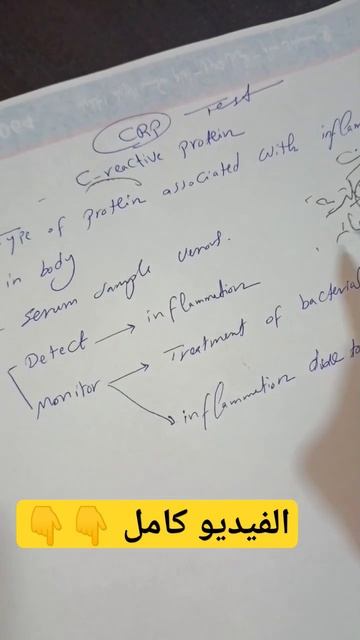 CRP Test
C-reactive protein
Type of protein associated with inflam
in body
- Serum sample venous.
Detect → inflammation
Monitor → Treatment of bacterial
→ inflammation due to
الفيديو كامل 👇👇